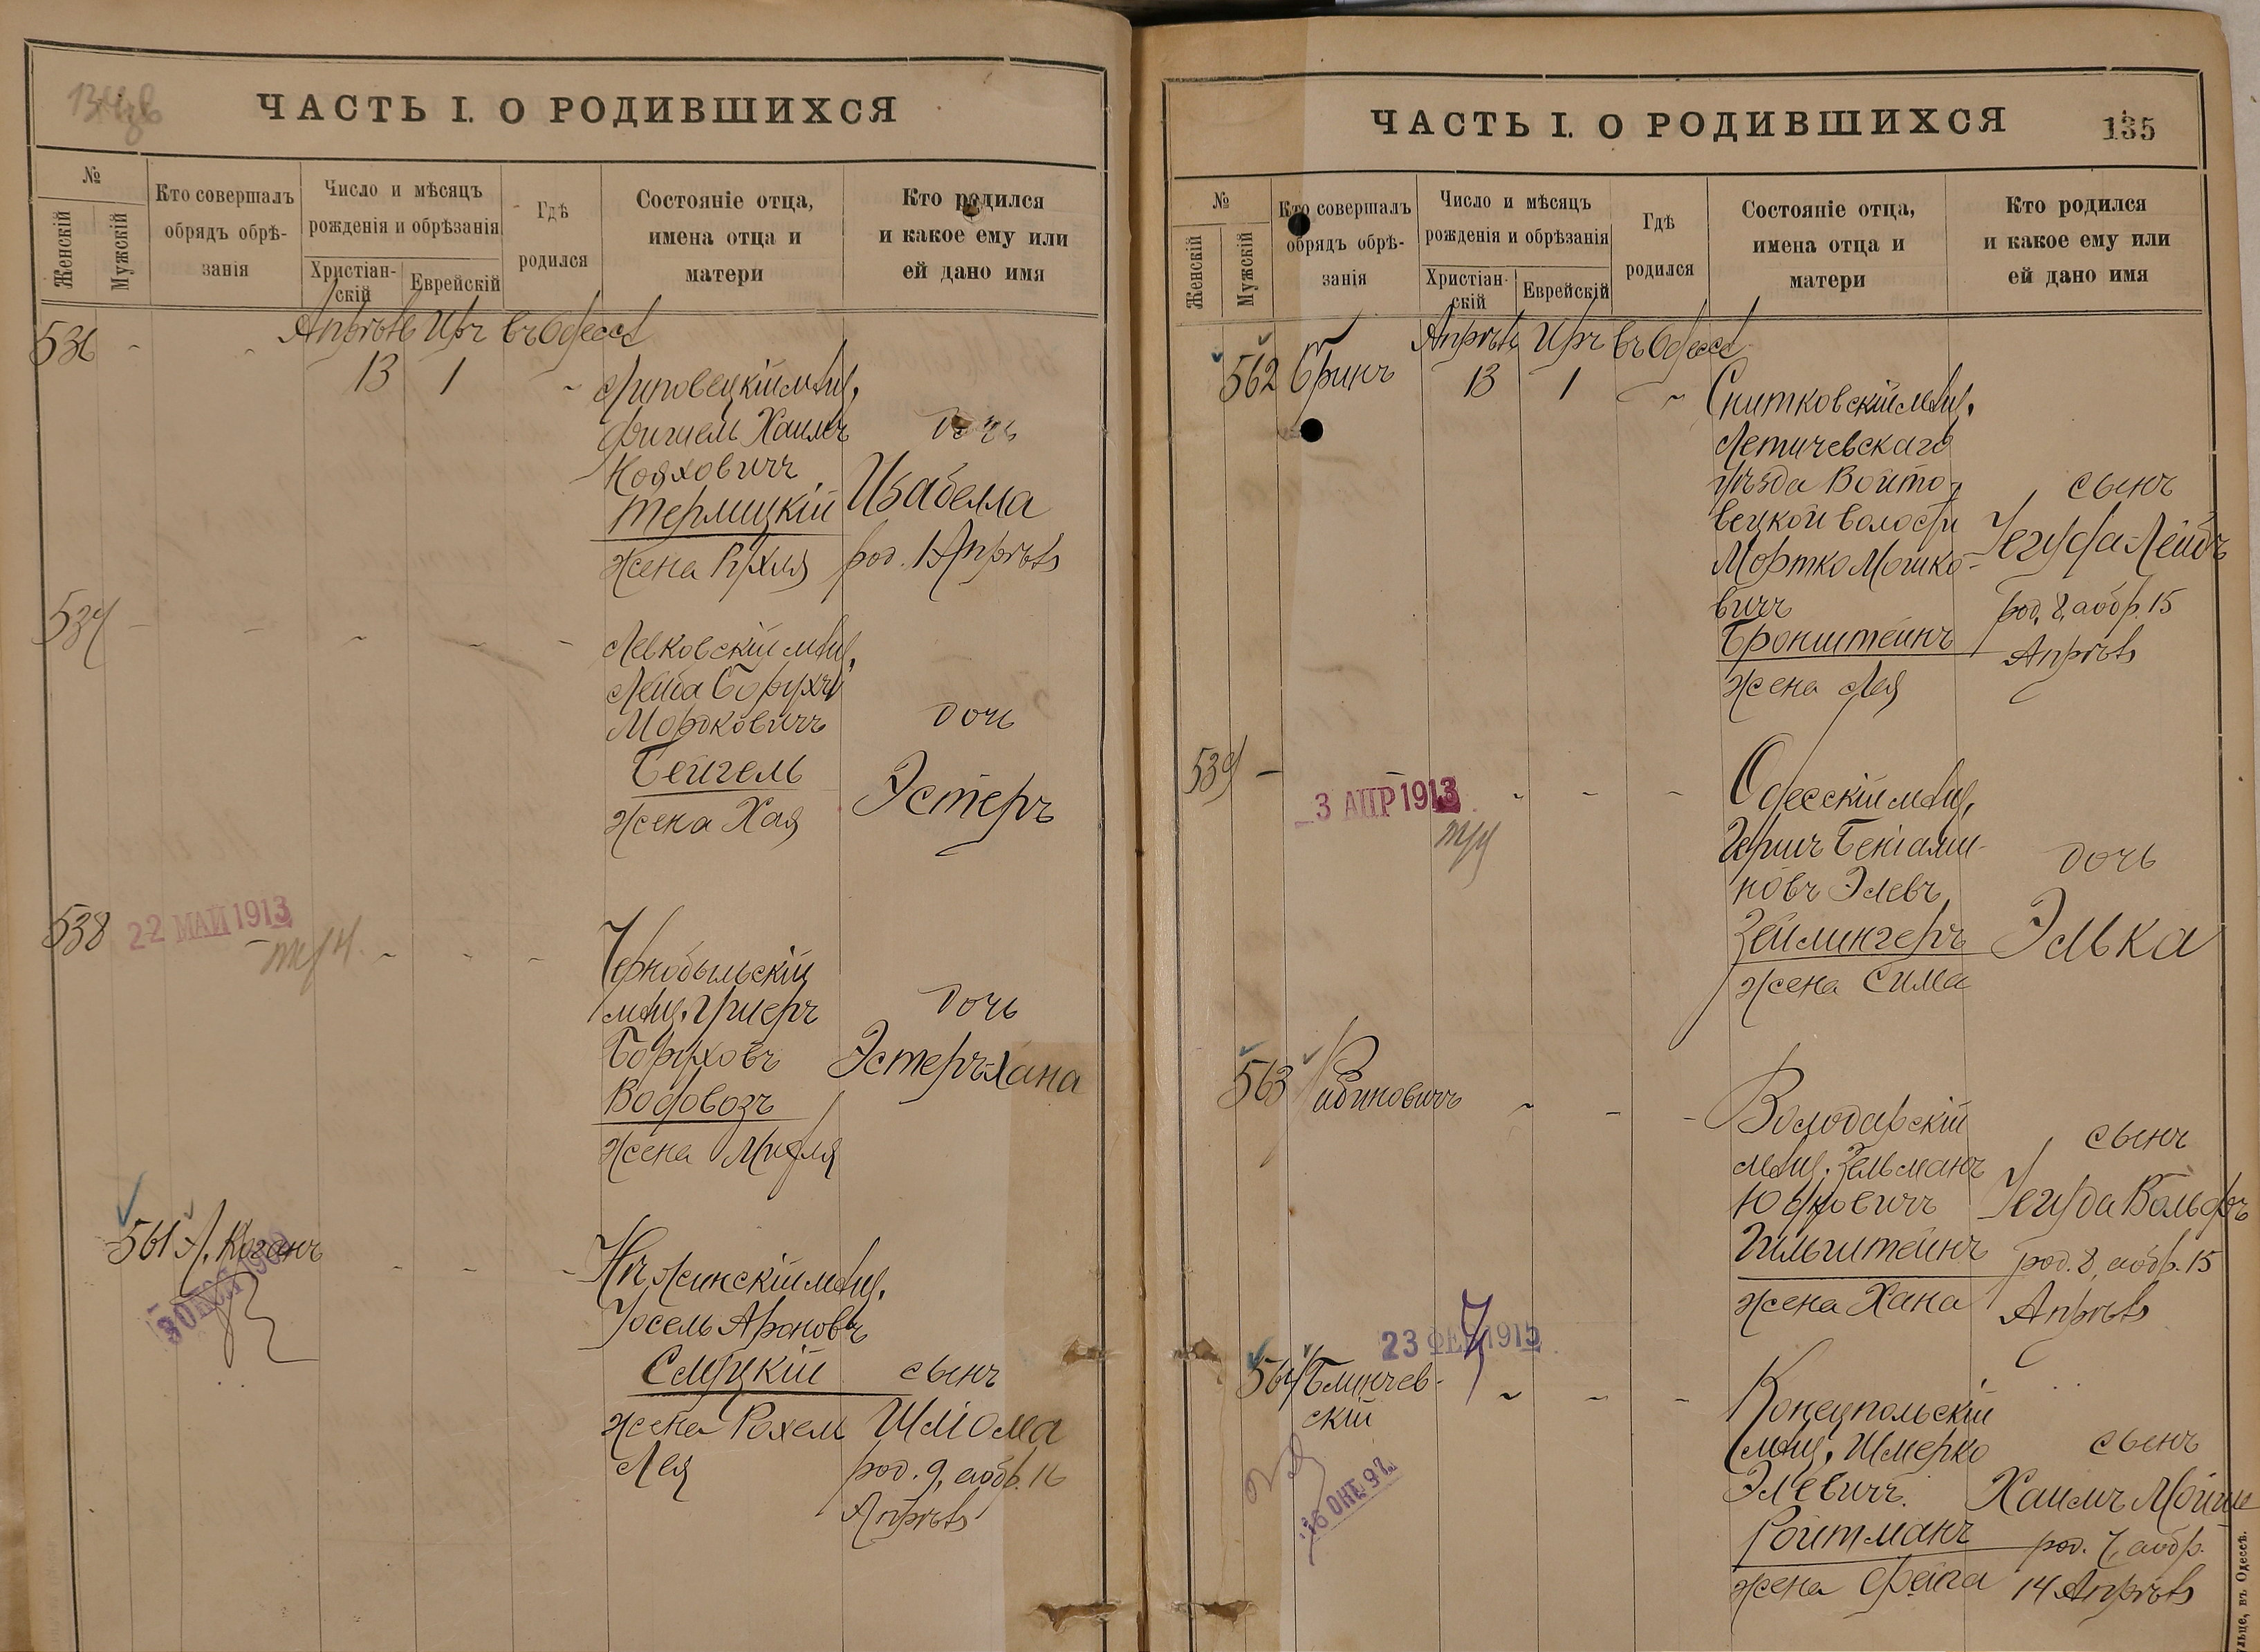 ЧАСТЬ I. О РОДИВШИХСЯ
№
Женскій
Мужскій
Кто совершалъ
обрядъ обрѣ-
занія
Число и мѣсяцъ
рожденія и обрѣзанія
Христіан-
скій
Еврейскій
Гдѣ
родился
Состояніе отца,
имена отца и
матери
Кто родился
и какое ему или
ей дано имя
536
Апрѣль Иръ въ Одессѣ
13 1
Липовецкій мѣщ.
Фишель Хаимъ
Нояховичъ
Термицкій
жена Рухля
дочь
Изабелла
род. 13 Апрѣля
537
Левковскій мѣщ.
Лейба Борухъ
Мордковичъ
Бейгель
жена Хая
дочь
Эстеръ
538
22 МАЙ 1913
Чернобыльскій
мѣщ. Ушеръ
Боруховъ
Водовозъ
жена
дочь
Эстеръ-Хана
561
А. Коганъ
Нѣжинскій мѣщ.
Іосель Ароновъ
Слуцкій
жена Рохель
Лея
сынъ
Шліома
род. 9, а обр. 16
Апрѣля
ЧАСТЬ I. О РОДИВШИХСЯ
135
№
Женскій
Мужскій
Кто совершалъ
обрядъ обрѣ-
занія
Число и мѣсяцъ
рожденія и обрѣзанія
Христіан-
скій
Еврейскій
Гдѣ
родился
Состояніе отца,
имена отца и
матери
Кто родился
и какое ему или
ей дано имя
562
Гринъ
Апрѣль Иръ въ Одессѣ
13 1
Снитковскій мѣщ.
Летичевскаго
уѣзда Войто-
вецкой волости
Мортко Мошко-
вичъ
Бронштейнъ
жена Лея
сынъ
Іегуда-Лейбъ
род. 8, а обр. 15
Апрѣля
539
3 АПР 1913
Одесскій мѣщ.
Гершъ Беніами-
новъ Элевъ
Зейлингеръ
жена Сима
дочь
Элька
563
Рабиновичъ
Володарскій
мѣщ. Зельманъ
Юдковичъ
Гильштейнъ
жена Хана
сынъ
Іегуда Вольфъ
род. 8, а обр. 15
Апрѣля
23 ФЕВ 1915
564
Блинчев-
скій
16 ОКТ. 92
Конецпольскій
мѣщ. Шмерко
Элевичъ
Ройтманъ
жена Фейга
сынъ
Хаимъ Мойше
род. 7, а обр.
14 Апрѣля
въ Одессѣ.